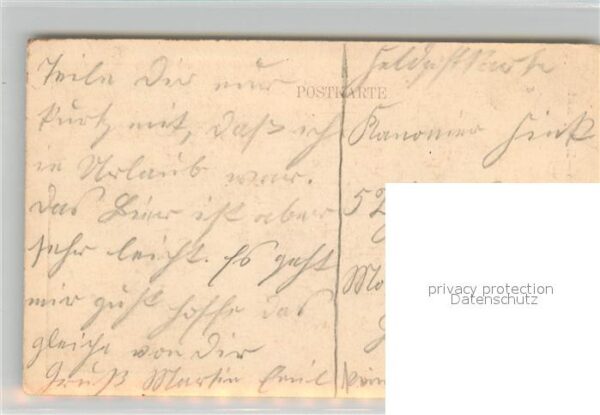 Teile Dir nur
kurtz mit, daß ich
in Urlaub war.
Das Bier ist aber
sehr leicht. Es geht
mir guht hoffe das
gleiche von Dir
Gruß Martin Emil
POSTKARTE
Feldpostkarte
Kanonier Fink
52
Mo
privacy protection
Datenschutz